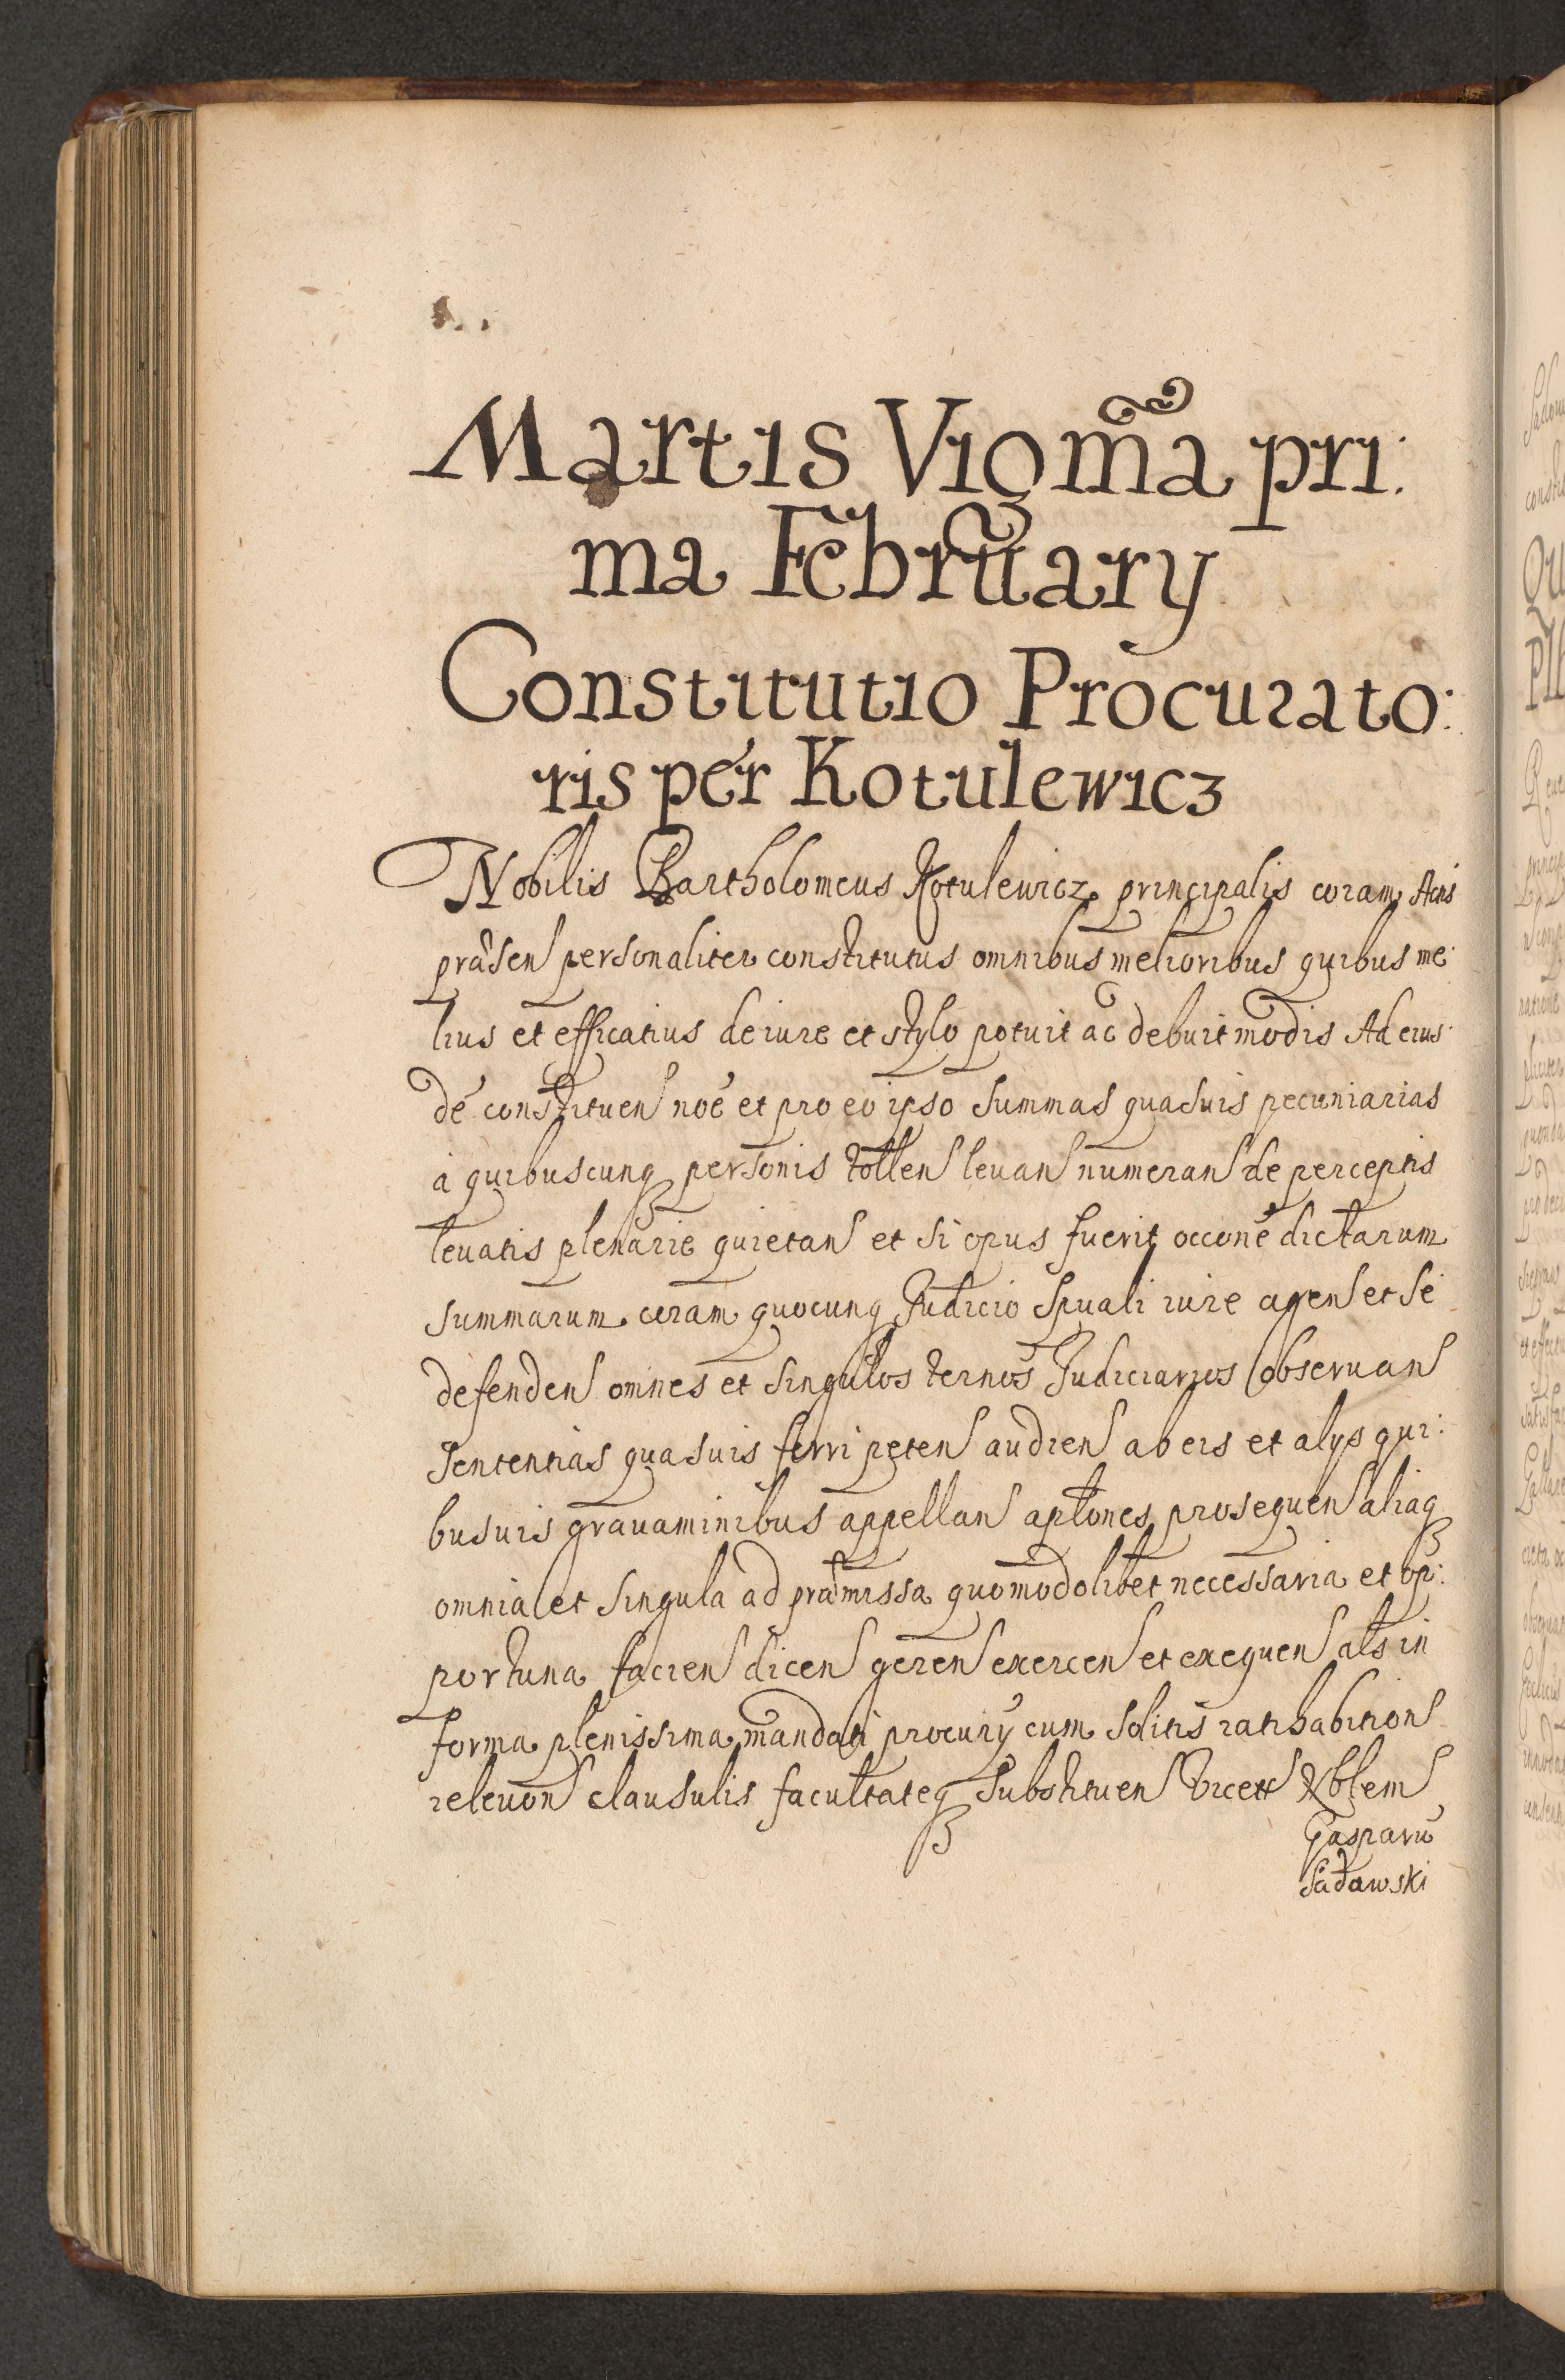 Martis Vigma pri:
ma February
Constitutio Procurato:
ris per Kotulewicz
Nobilis Bartholomeus Kotulewicz principalis coram Actis
præsen personaliter constitutus omnibus melioribus quibus me
lius et efficatius de iure et stylo potuit ac debuit modis Ad eius
de constituen noe et pro eo ipso summas quasuis pecuniarias
a quibuscunq personis tollen leuan numeran de perceptis
leuatis plenarie quietan et si opus fuerit occone dictarum
summarum coram quocunq Judicio Spuali iure agen et se
defenden omnes et singulos ternos Judiciarios obseruan
sententias quasuis ferri peten audien ab eis et alys qui:
busuis grauaminibus appellan aplones prosequen aliaq
omnia et singula ad præmissa quomodolibet necessaria et op:
portuna facien dicen geren exercen et exequen als in
forma plenissima mandati procury cum solitis ratihabition
releuon clausulis facultateq substituen Vicett Nblem
Gasparu
Sadawski